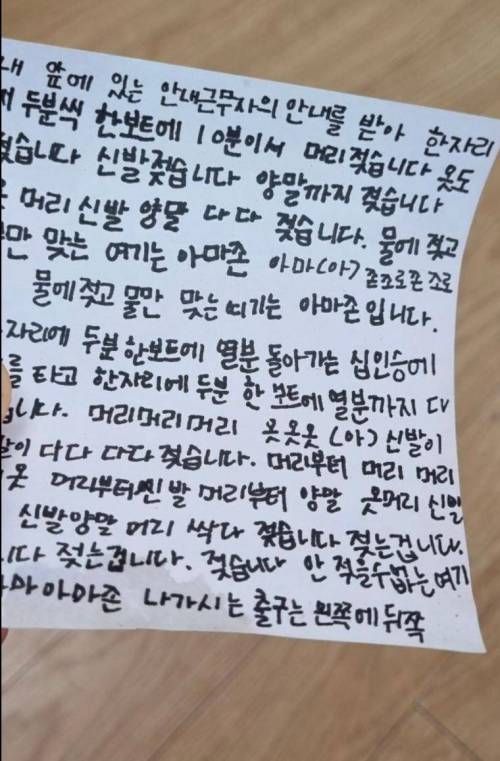 내 앞에 있는 안내근무자의 안내를 받아 한자리
두분씩 한보트에 10분이서 머리젖습니다 옷도
젖습니다 신발젖습니다 양말까지 젖습니다
머리신발 양말 다 다 젖습니다. 물에 젖고
물만 맞는 여기는 아마존 아마(아) 존조로존 조로
물에젖고 물만 맞는 여기는 아마존입니다.
자리에 두분한보트에 열분 돌아가는 십인승에
를 타고 한자리에 두분 한 보트에 열분까지 다
니다. 머리머리머리 옷옷옷 (아) 신발이
말이 다다 다다 젖습니다. 머리부터 머리 머리
옷 머리부터신발 머리부터 양말 옷머리 신발
신발양말 머리 싹다 젖습니다 젖는겁니다.
니다 젖는겁니다. 젖습니다 안 젖을수없는여기
마아마존 나가시는 출구는 왼쪽에뒤쪽